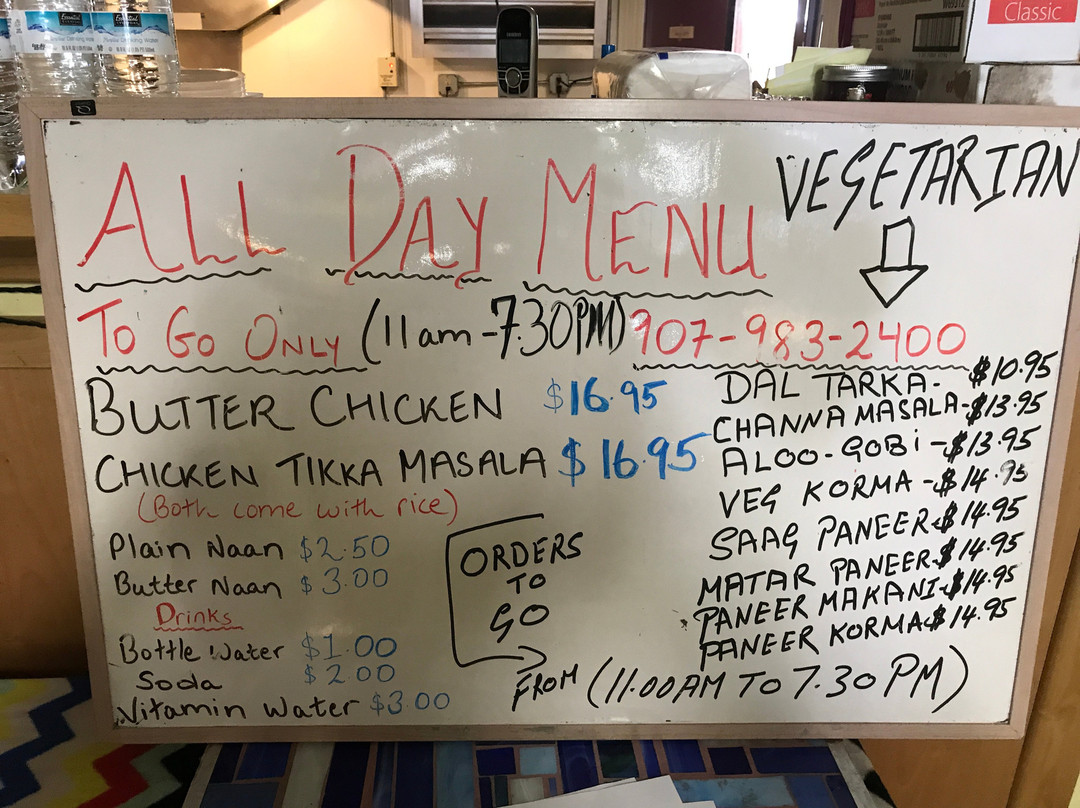 Essential
Essential
Classic
VEGETARIAN
ALL DAY MENU
TO GO ONLY (11am-7.30PM) 907-983-2400
BUTTER CHICKEN $16.95
CHICKEN TIKKA MASALA $16.95
(Both come with rice)
Plain Naan $2.50
Butter Naan $3.00
Drinks
Bottle Water $1.00
Soda $2.00
Vitamin Water $3.00
ORDERS
TO
GO
FROM (11.00AM TO 7.30 PM)
DAL TARKA- $10.95
CHANNA MASALA-$13.95
ALOO-GOBI-$13.95
VEG KORMA-$14.95
SAAG PANEER-$14.95
MATAR PANEER-$14.95
PANEER MAKANI-$14.95
PANEER KORMA-$14.95